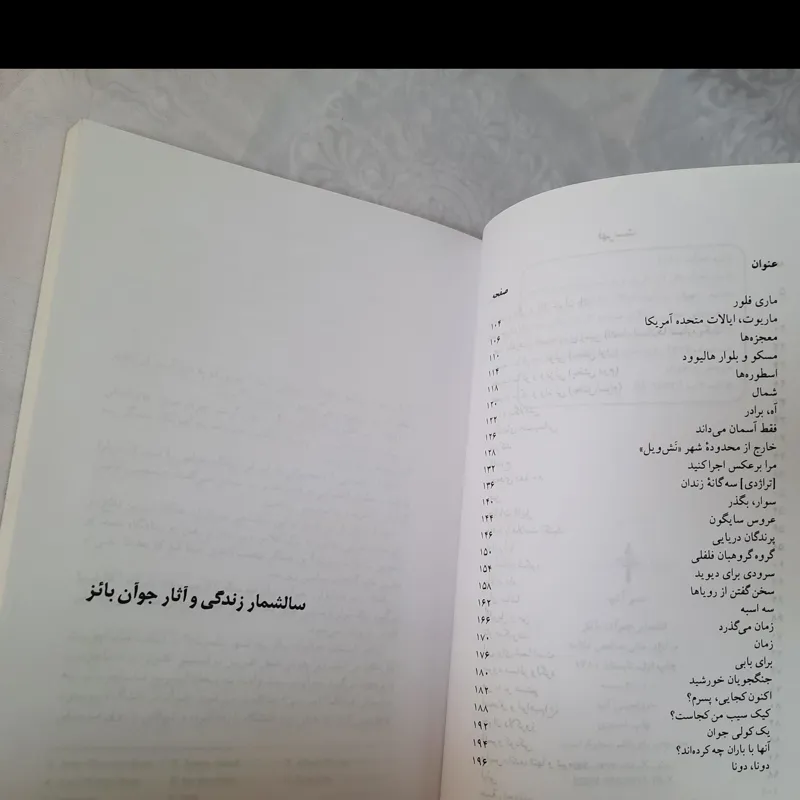 عنوان صفحه
ماری فلور ۱۰۴
ماریوت، ایالات متحده آمریکا ۱۰۶
معجزه‌ها ۱۱۰
مسکو و بلوار هالیوود ۱۱۴
اسطوره‌ها ۱۱۸
شمال ۱۲۰
آه، برادر ۱۲۲
فقط آسمان می‌داند ۱۲۶
خارج از محدودهٔ شهر «نَش‌ویل» ۱۲۸
مرا برعکس اجرا کنید ۱۳۲
[تراژدی] سه‌گانهٔ زندان ۱۳۶
سوار، بگذر ۱۴۰
عروس سایگون ۱۴۴
پرندگان دریایی ۱۴۶
گروه گروهبان فلفلی ۱۵۰
سرودی برای دیوید ۱۵۴
سخن گفتن از رویاها ۱۵۸
سه اسبه ۱۶۲
زمان می‌گذرد ۱۶۶
زمان ۱۷۰
برای بابی ۱۷۶
جنگجویان خورشید ۱۸۰
اکنون کجایی، پسرم؟ ۱۸۲
کیک سیب من کجاست؟ ۱۸۸
یک کولی جوان ۱۹۲
آنها با باران چه کرده‌اند؟ ۱۹۴
دونا، دونا ۱۹۶
سالشمار زندگی و آثار جوآن بائز